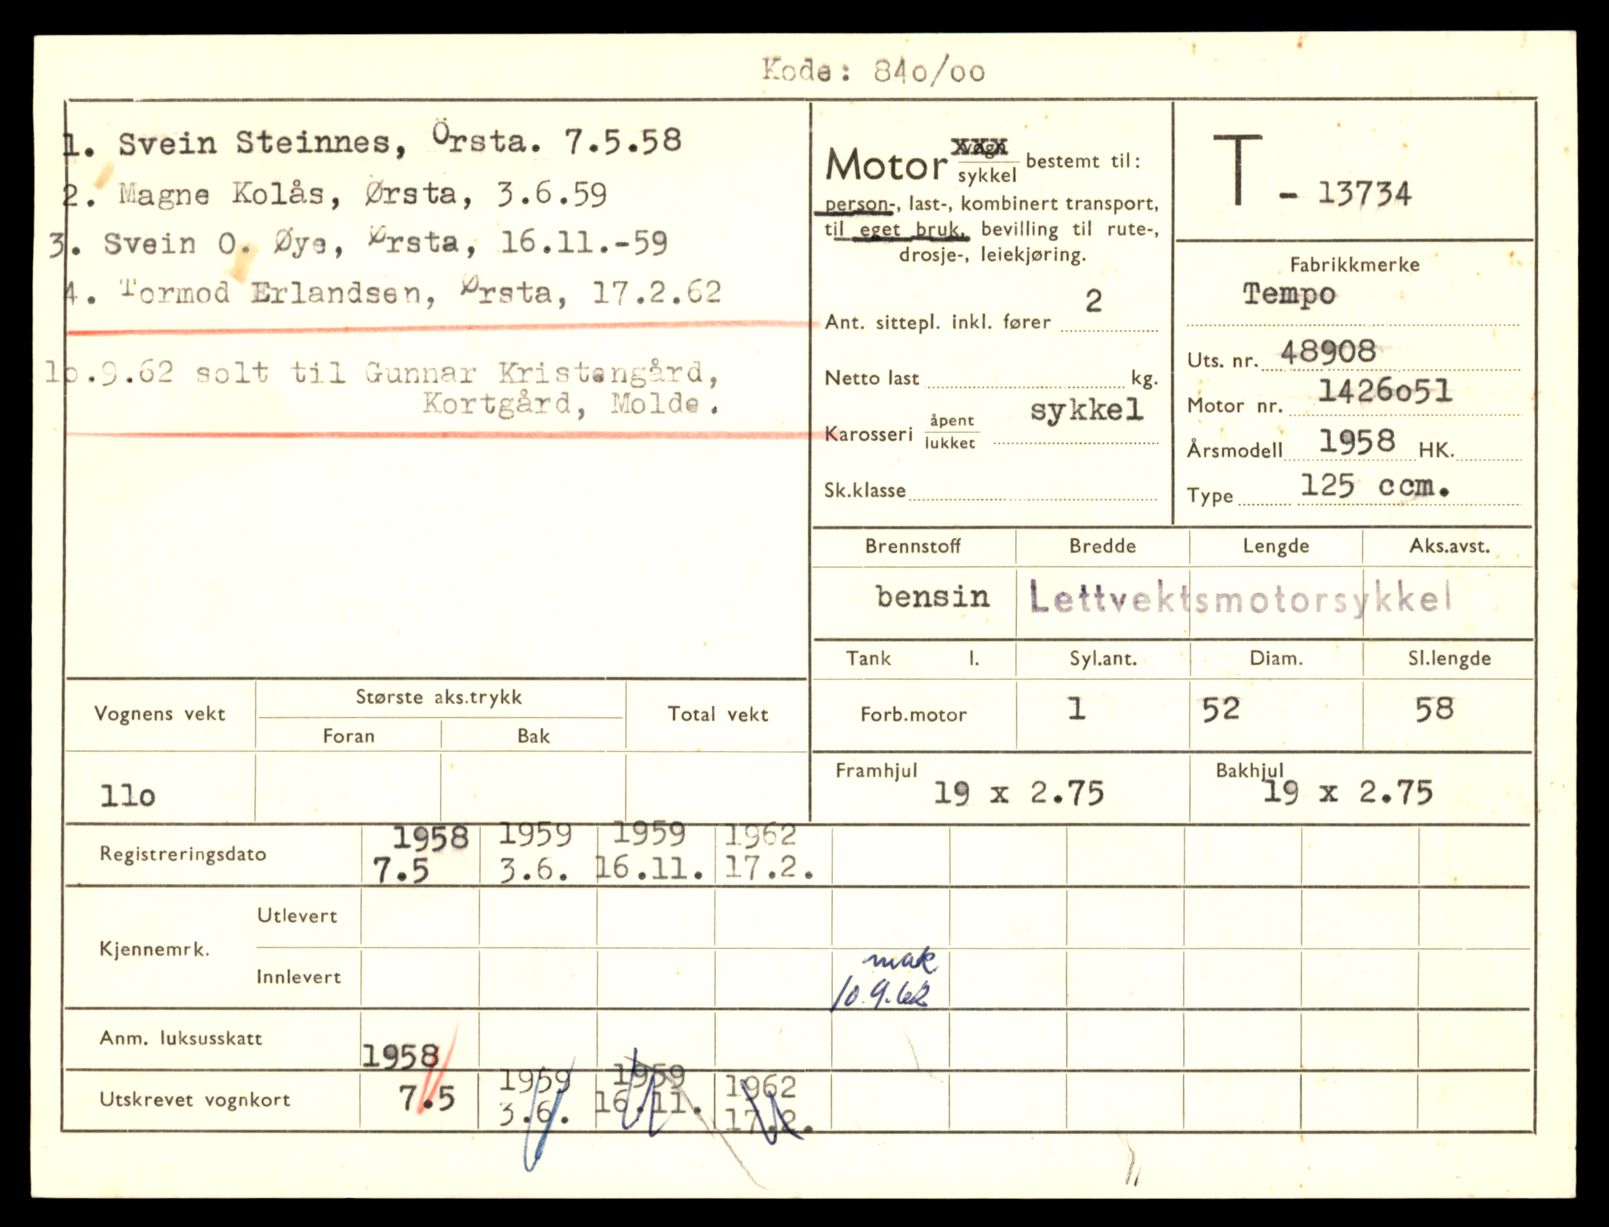 Kode: 84o/oo
1. Svein Steinnes, Örsta. 7.5.58
2. Magne Kolås, Ørsta, 3.6.59
3. Svein O. Øye, Ørsta, 16.11.-59
4. Tormod Erlandsen, Ørsta, 17.2.62
1o.9.62 solt til Gunnar Kristengård,
Kortgård, Molde.
Motor vogn sykkel bestemt til:
person-, last-, kombinert transport,
til eget bruk, bevilling til rute-,
drosje-, leiekjøring.
Ant. sittepl. inkl. fører 2
Netto last kg.
Karosseri åpent lukket sykkel
Sk.klasse
T - 13734
Fabrikkmerke
Tempo
Uts. nr. 48908
Motor nr. 1426o51
Årsmodell 1958 HK.
Type 125 ccm.
Brennstoff Bredde Lengde Aks.avst.
bensin Lettvektsmotorsykkel
Tank l. Syl.ant. Diam. Sl.lengde
Forb.motor 1 52 58
Framhjul 19 x 2.75 Bakhjul 19 x 2.75
Vognens vekt Største aks.trykk Total vekt
Foran Bak
11o
Registreringsdato 1958 1959 1959 1962
7.5 3.6. 16.11. 17.2.
Kjennemrk. Utlevert
Innlevert mak
10.9.62
Anm. luksusskatt
Utskrevet vognkort 1958 1959 1959 1962
7.5 3.6. 16.11. 17.2.